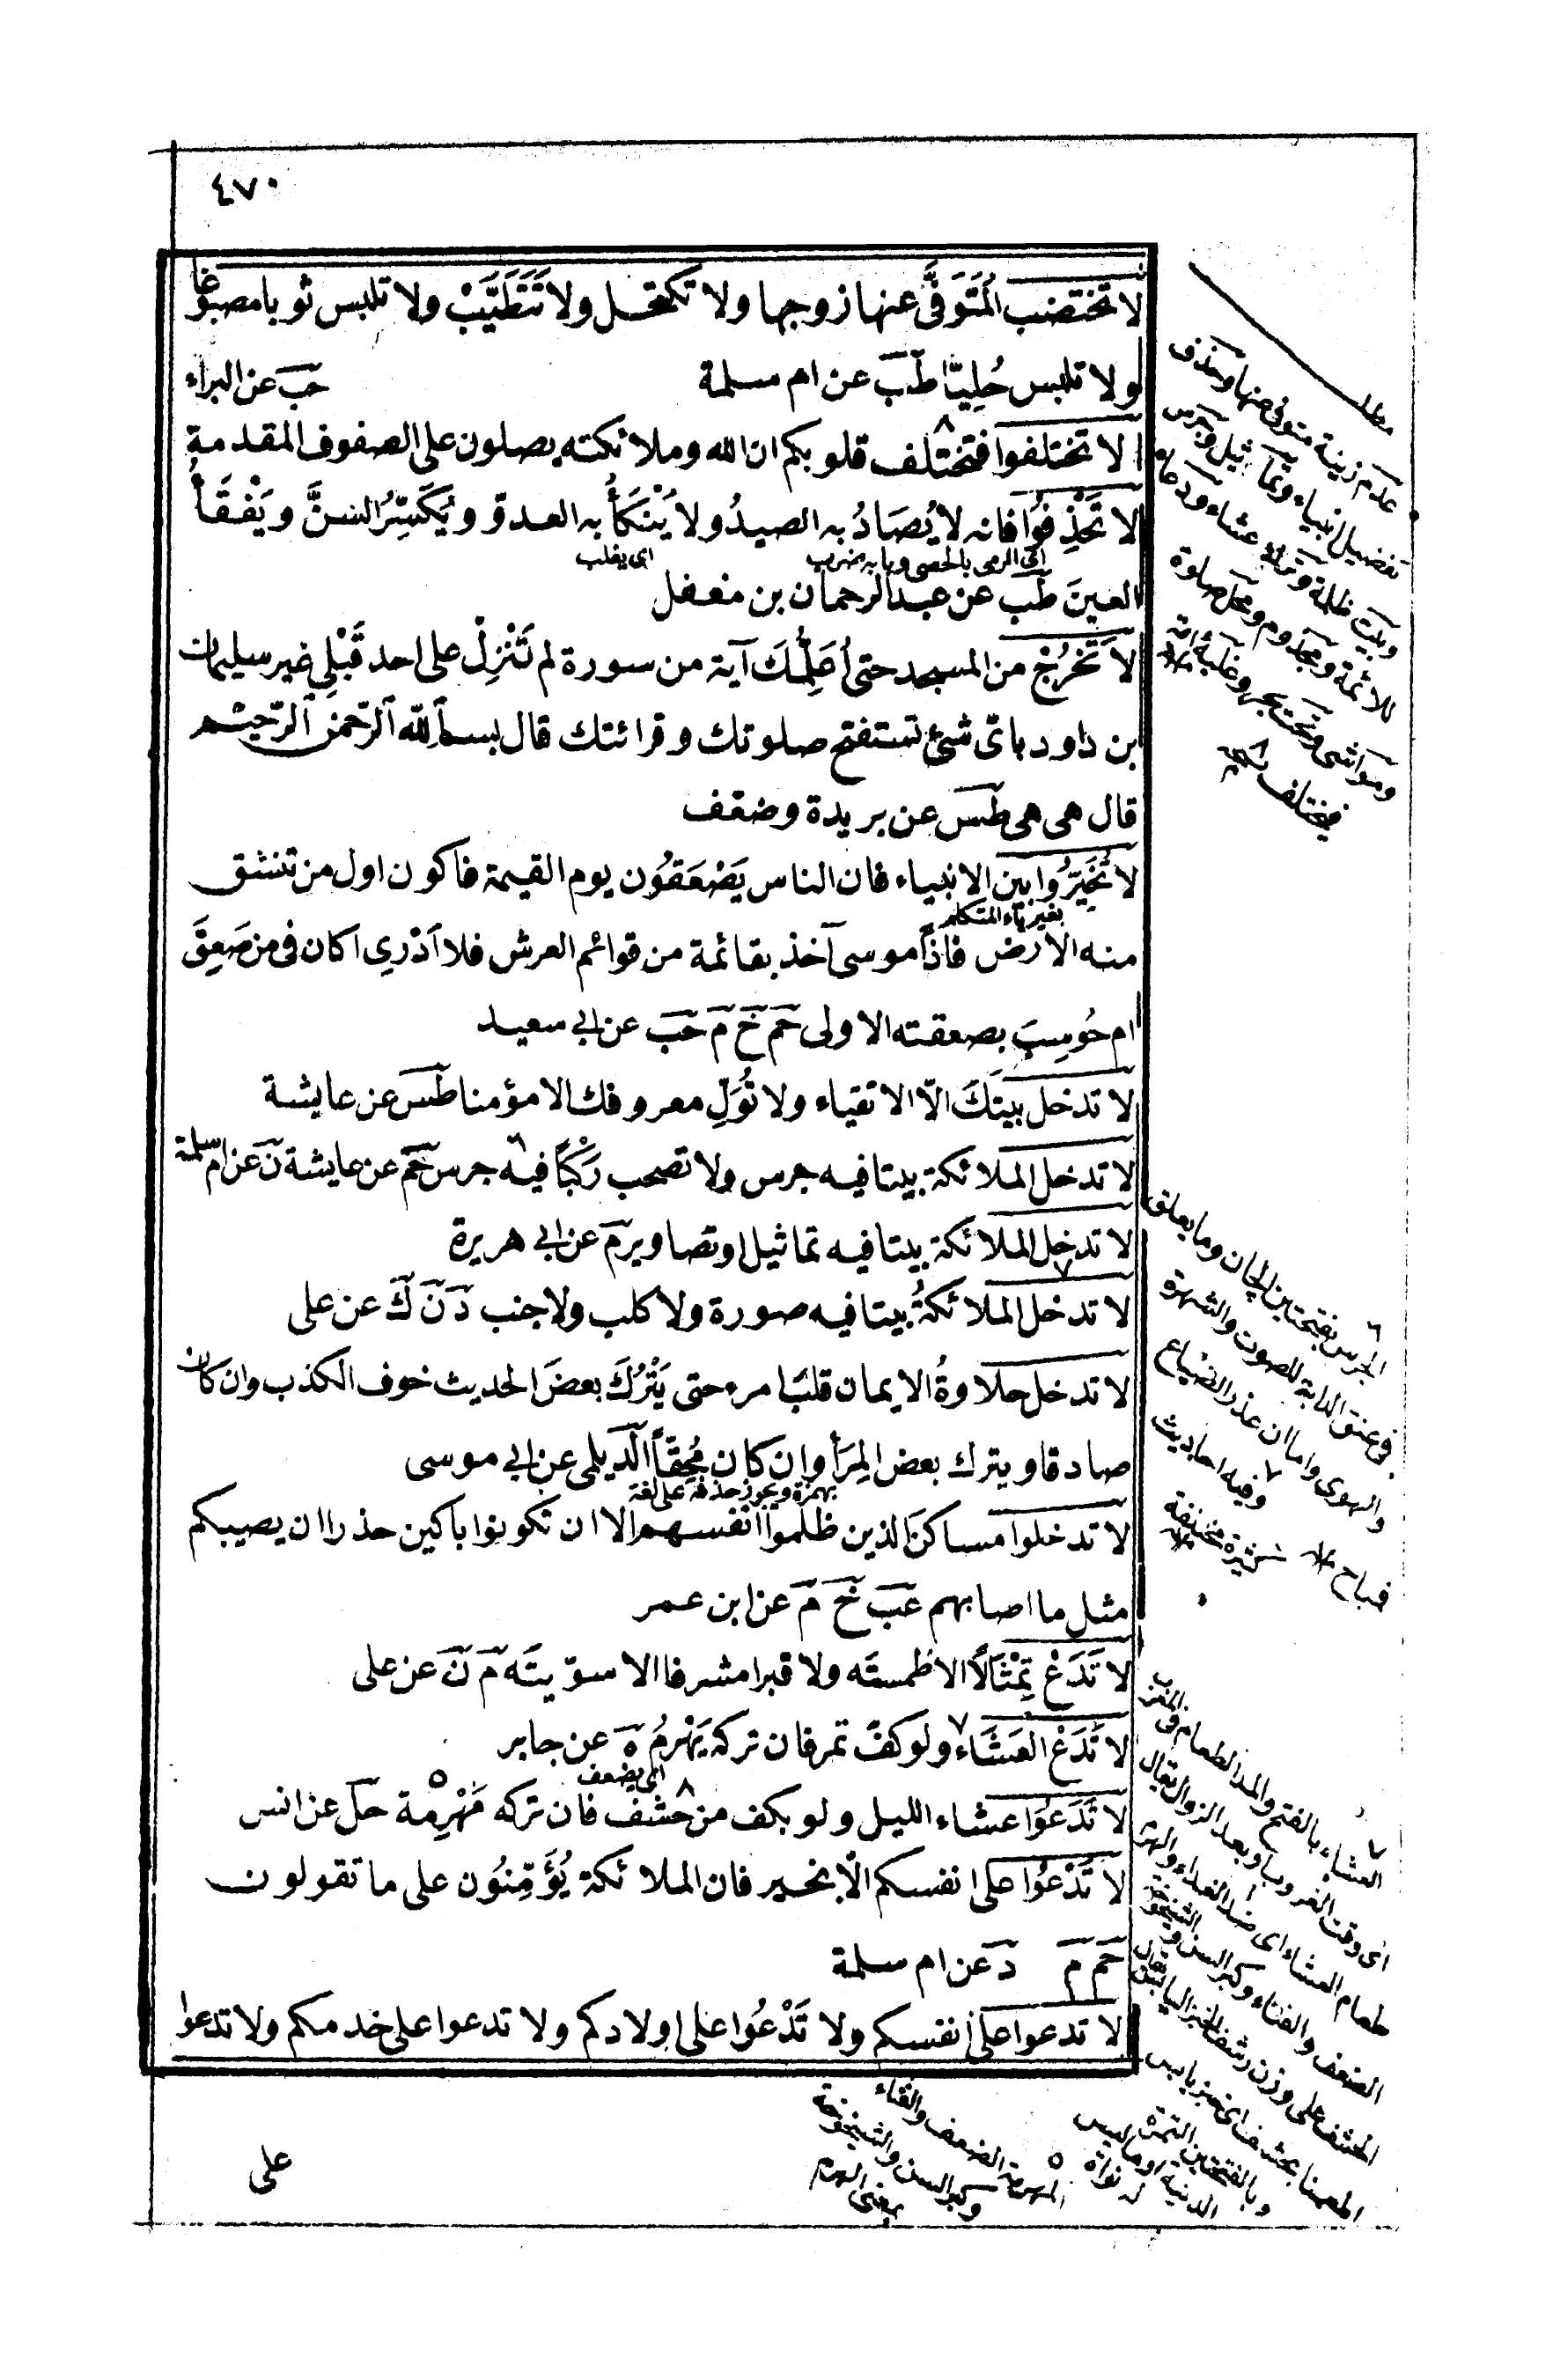 ٤٧٠
لا تختضب المُتَوَفَّى عنها زوجها ولا تكتحل ولا تَتَطَيَّبْ ولا تلبس ثوبا مصبوغا
ولا تلبس حُلِيّا طب عن ام سلمة حب عن البراء
لا تختلفوا فتختلف قلوبكم ان الله وملائكته يصلون على الصفوف المقدمة
لا تَخْذِفُوا فانه لا يُصَادُ به الصيدُ ولا يَنْكَأُ به العدوّ ويُكَسِّرُ السنَّ ويَفْقَأُ
اى الرمى بالحصى وبابه ضرب
اى يغلب
العينَ طب عن عبد الرحمان بن مغفل
لا تَخْرُجْ من المسجد حتى أُعَلِّمُكَ آية من سورة لم تَنْزِلْ على احد قَبْلِي غير سليمان
بن داود باىّ شئ تستفتح صلوتك وقرائتك قال بسم الله الرّحمن الرّحيم
قال هى هى طس عن بريدة وضعف
لا تُخَيِّرُوا بين الانبياء فان الناس يَصْعَقُون يوم القيمة فاكون اول من تنشق
بغير ياء المتكلم
منه الارض فاذا موسى آخذ بقائمة من قوائم العرش فلا اَدْرِى أكان فى من صَعِقَ
ام حُوسِبَ بصعقته الاولى حم خ م حب عن ابى سعيد
لا تدخل بيتَكَ الّا الاتقياء ولا تُوَلِّ معروفك الا مؤمنا طس عن عايشة
لا تدخل الملائكة بيتا فيه جرس ولا تصحب رَكْبًا فيه جرس حم عن عايشة ن عن ام سلمة
لا تدخل الملائكة بيتا فيه تماثيل او تصاوير م عن ابى هريرة
لا تدخل الملائكةُ بيتا فيه صورة ولا كلب ولا جنب د ن ك عن على
لا تدخل حلاوةُ الايمان قلبَ امرء حتى يَتْرُكَ بعضَ الحديث خوف الكذب وان كان
صادقا ويترك بعض المِرَأ وان كان مُحِقّاً الديلمى عن ابى موسى
بهمزة ويجوز حذفه على لغة
لا تدخلوا مساكنَ الذين ظلموا انفسهم الا ان تكونوا باكين حذرا ان يصيبكم
مثل ما اصابهم عب خ م عن ابن عمر
لا تَدَعْ تِمْثَالاً الا طمستَه ولا قبرا مشرفا الا سوّيتَه م ن عن على
لا تَدَعْ العَشَاء ولو كفّ تمر فان تركه يَهْرِمُ ه عن جابر
اى يضعف
لا تَدَعُوا عشاء الليل ولو بكف من حشف فان تركه مَهْرِمة حل عن انس
لا تَدْعُوا على انفسكم الّا بخير فان الملائكة يُؤَمِّنُون على ما تقولون
حم م د عن ام سلمة
لا تدعوا على انفسكم ولا تَدْعُوا على اولادكم ولا تدعوا على خدمكم ولا تدعوا
على
مطلـ
عدم زينة متوفى عنها وحذف
تفضيل انبياء وتماثيل وجرس
للائمة ومجذوم ومحل صلوة
الجرس بفتحتين الجان وما يعلق
فى عنق الدابة للصوت والشهرة
والهوى واما ان عذر الضياع
فباح
وفيه احاديث
كثيرة مختلفة
العشاء بالفتح والمد الطعام فى المغرب
اى وقت الغروب او بعد الزوال يقال
طعام العشاء اى ضد الغداء
الضعف والفناء وكبر السن
وبالفتحتين التمرة
المهرمة الضعف والفناء
وكبر السن والشيخوخة
بمعنى الهرم